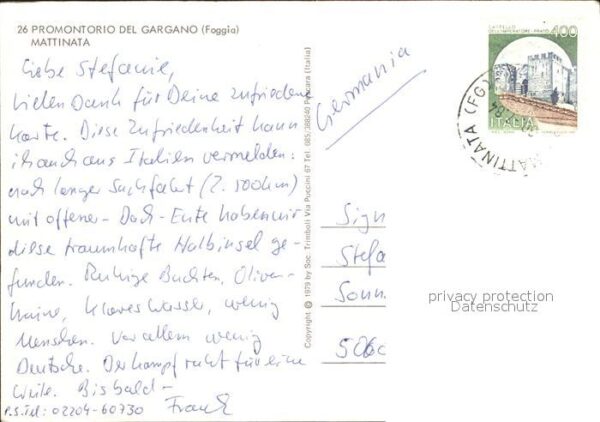 26 PROMONTORIO DEL GARGANO (Foggia)
MATTINATA
Liebe Stefanie,
vielen Dank für Deine zufriedene
Karte. Diese Zufriedenheit kann
ich auch aus Italien vermelden:
nach langer Suchfahrt (2.100km)
mit offener-Dach-Ente haben wir
diese traumhafte Halbinsel ge-
funden. Ruhige Buchten, Oliven-
haine, klares Wasser, wenig
Menschen. Vor allem wenig
Deutsche. Der Kampf ruht für eine
Weile. Bis bald -
Frank
P.S. Tel: 02204-60730
Copyright © 1979 by Soc. Trimboli Via Puccini 67 Tel. 685.388240 Pescara (Italia)
Germania
CASTELLO
DELL'IMPERATORE - PRATO
400
ITALIA
MATTINATA (FG)
84
Sign
Stefa
Sonn
506
privacy protection
Datenschutz